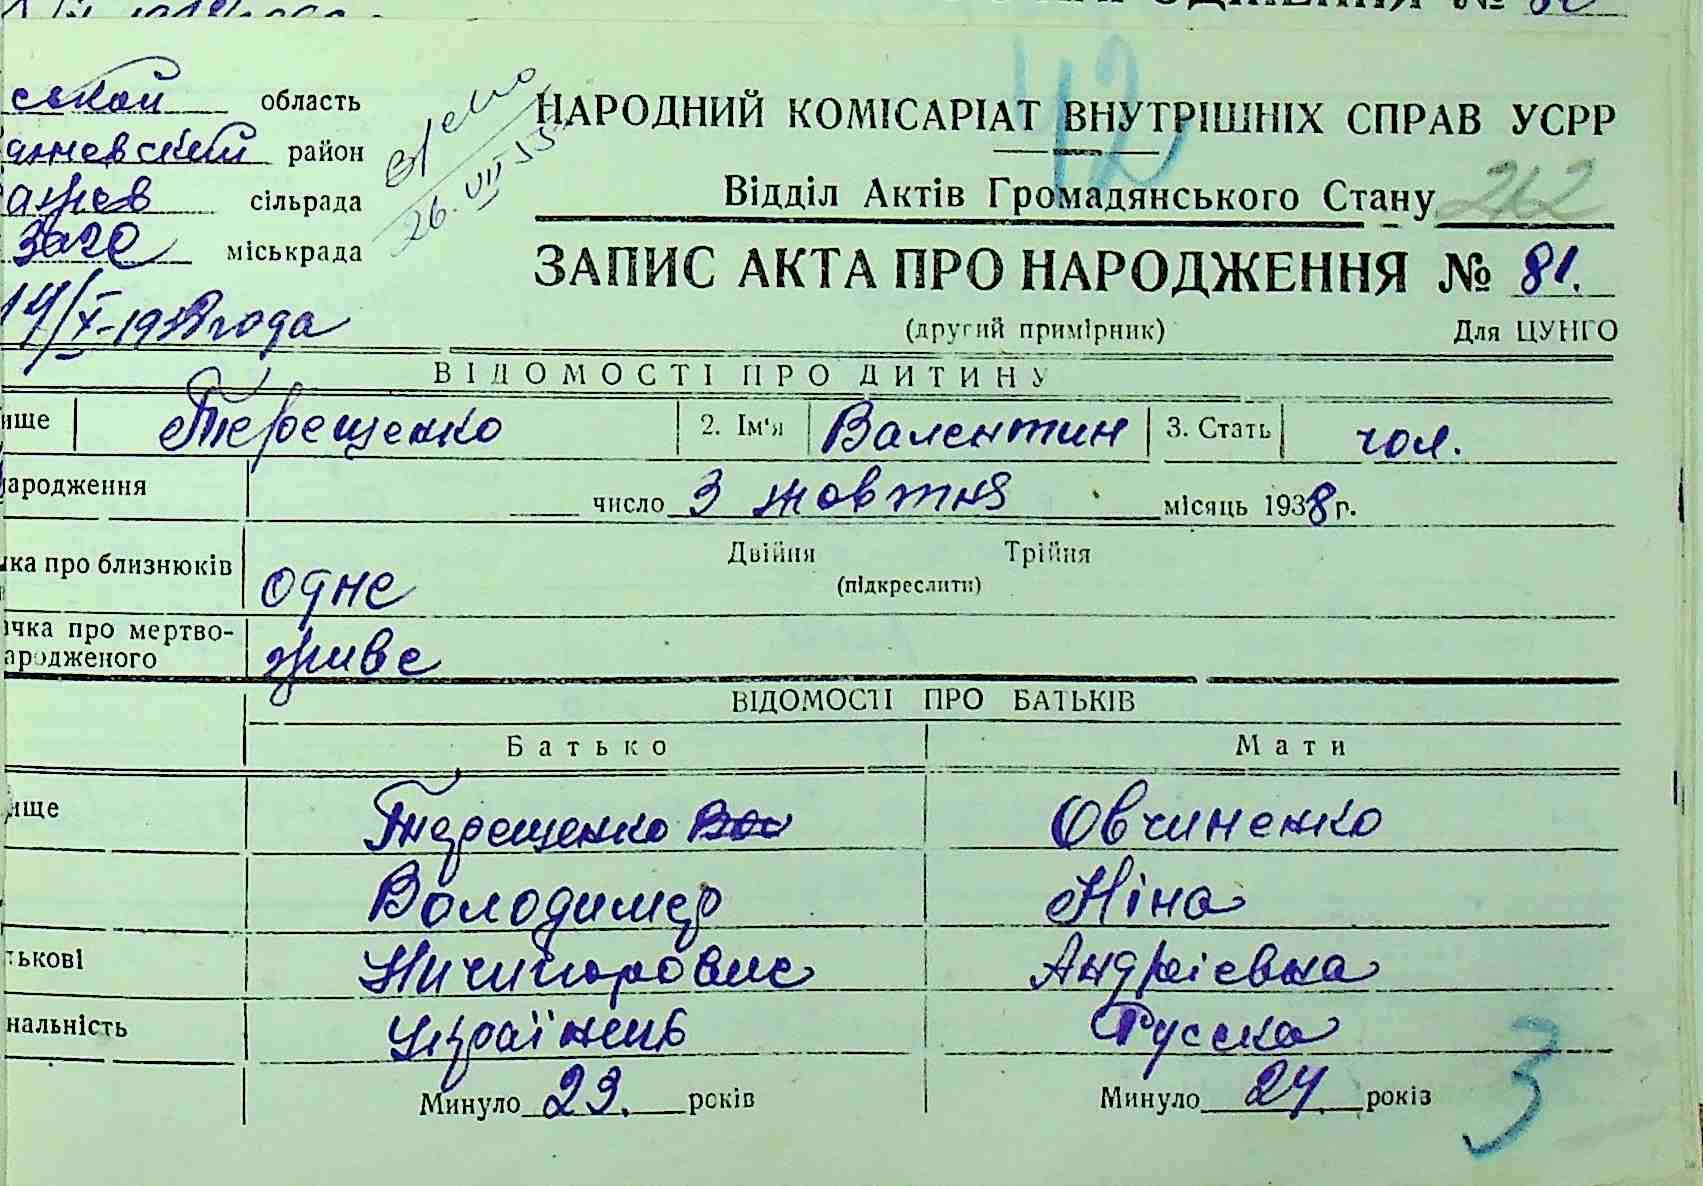 ськой область
район
сільрада
міськрада
14/X-1938 года
26.VII
42
НАРОДНИЙ КОМІСАРІАТ ВНУТРІШНІХ СПРАВ УСРР
Відділ Актів Громадянського Стану 212
ЗАПИС АКТА ПРО НАРОДЖЕННЯ № 81.
(другий примірник) Для ЦУНГО
ВІДОМОСТІ ПРО ДИТИНУ
ище Терещенко 2. Ім'я Валентин 3. Стать чол.
ародження число 3 жовтня місяць 1938 г.
ка про близнюків одне Двійня Трійня
(підкреслити)
ічка про мертво-
ародженого живе
ВІДОМОСТІ ПРО БАТЬКІВ
Батько Мати
ище Терещенко Овчиненко
Володимер Ніна
тькові Ничипорович Андрієвна
нальність Українець Русска
Минуло 23. років Минуло 24 років
3